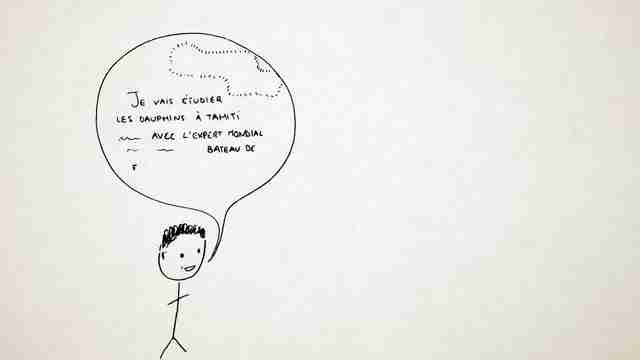 JE VAIS ÉTUDIER
LES DAUPHINS À TAHITI
AVEC L'EXPERT MONDIAL
BATEAU DE